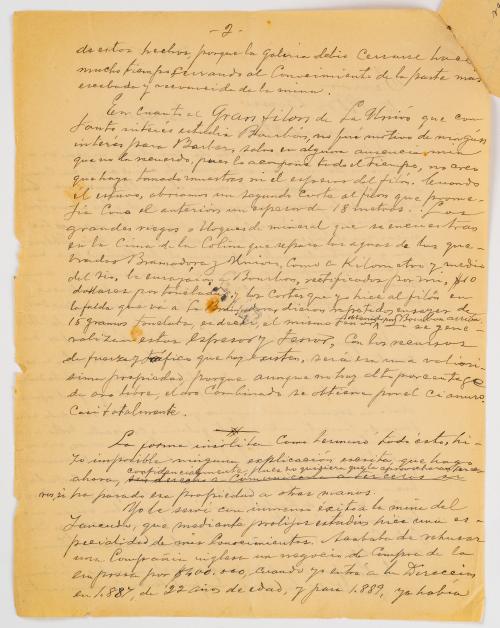 - 2 -
de estos hechos, porque la galería debió cerrarse hace
mucho tiempo, cerrando al conocimiento de la parte más
escabada y reconocida de la mina.
En cuanto al Gran filón de La Unión que con
tanto interés estudia Bourbón, no fué motivo de ningún
interés para Barber, salvo en alguna ausencia mía
que no la recuerdo, pues lo acompañé todo el tiempo, no creo
que haya tomado muestras ni el espesor del filón. Cuando
él estuvo, abríamos un segundo corte al filón que prome-
día como el anterior un espesor de 18 metros. Los
grandes riegos o bloques de mineral que se encuentran
en la cima de la Colina que separa las aguas de las que-
bradas Bramadora y Unión, como a Kilometro y medio
del río, le ensayaron a Bourbon, rectificados por mí, $10
dollares por tonelada, y los cortes que yo hice al filón en
la falda que va a la dieron repetidos ensayes de
15 gramos tonelada, es decir, el mismo tenor
ralizan estos espesor y tenor, con los recursos
de fuerza y tráfico que hoy existen, sería una valiosí-
sima propiedad porque aunque no hay alto porcentage
de oro libre, el oro combinado se obtiene por el cianuro
casi totalmente.
La forma insólita como terminó todo esto, hi-
zo imposible ninguna explicación escrita que hago
confidencialmente, pues no quisiera que la aprovecharan
ahora, sin derecho a comunicarlo a terceros si
ros, si ha pasado esa propiedad a otras manos.
Yo le serví con inmenso éxito a la mina del
Zancudo, que mediante prolijos estudios hice una es-
pecialidad de mis conocimientos. Acababa de rehusar
una Compañía inglesa un negocio de compra de la
empresa por $400.000, cuando yo entré a la Dirección
en 1.887, de 22 años de edad, y para 1.889, ya había